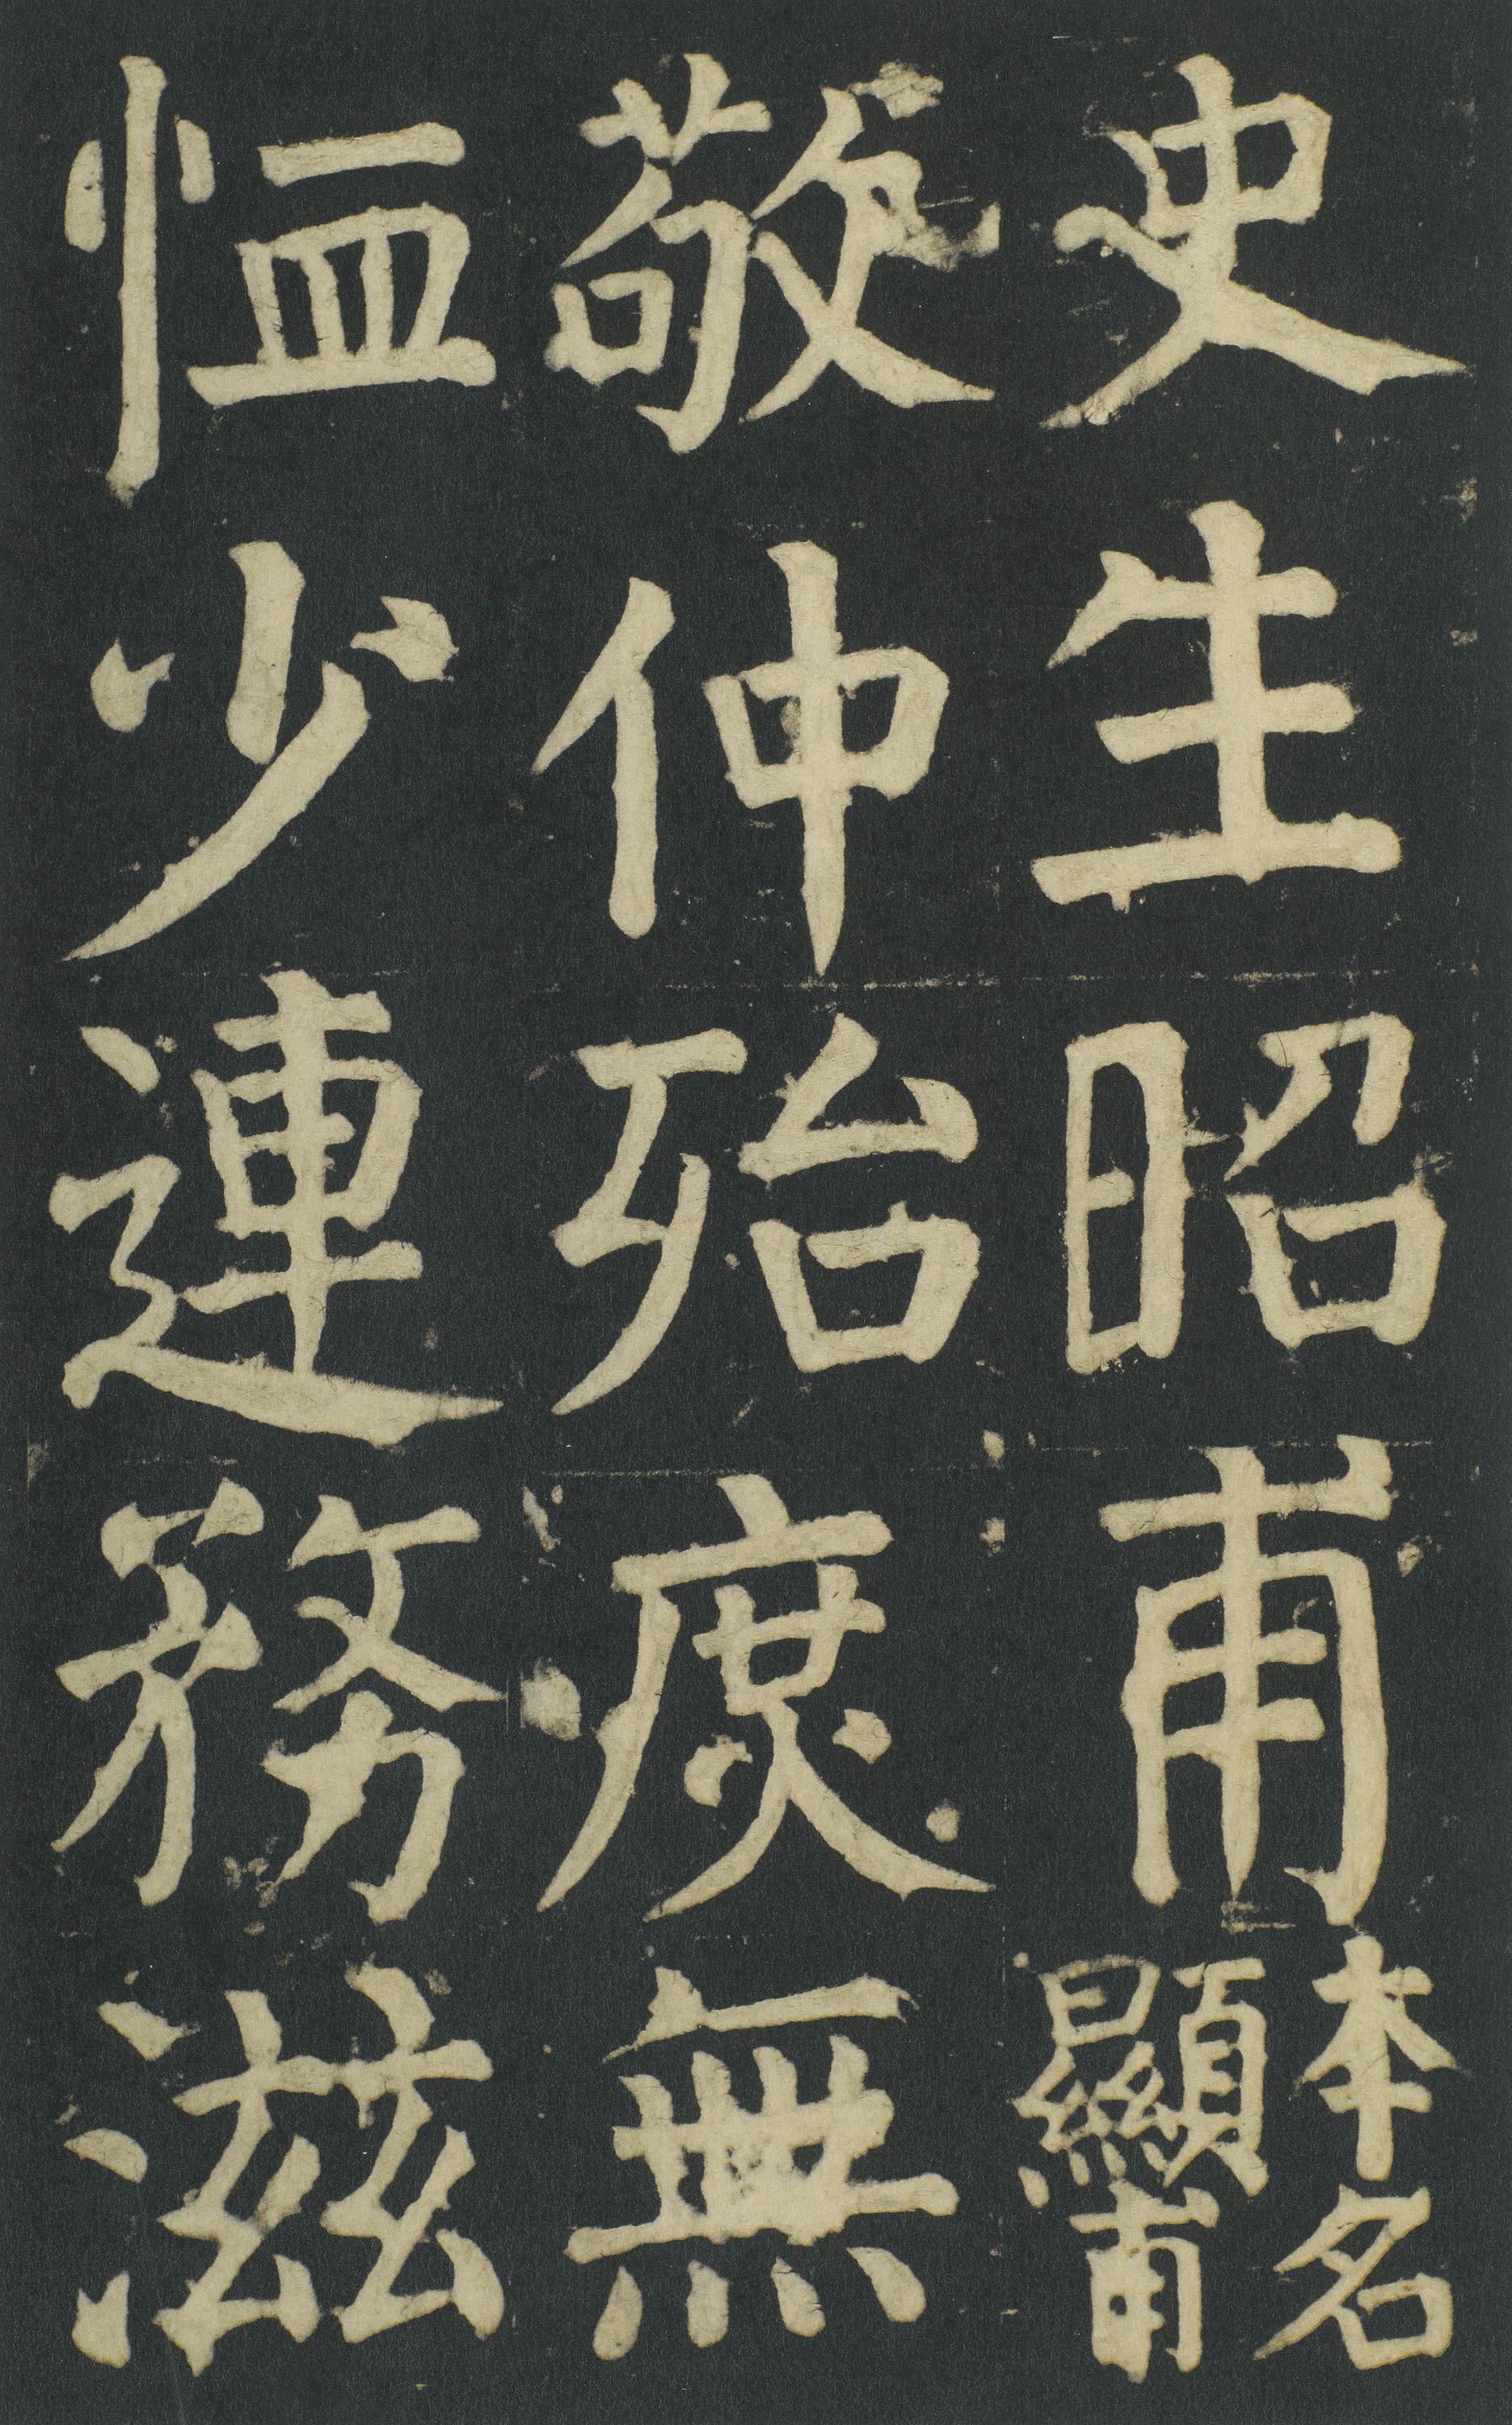 史生昭甫本名
顯甫
敬仲殆庶無
恤少連務滋